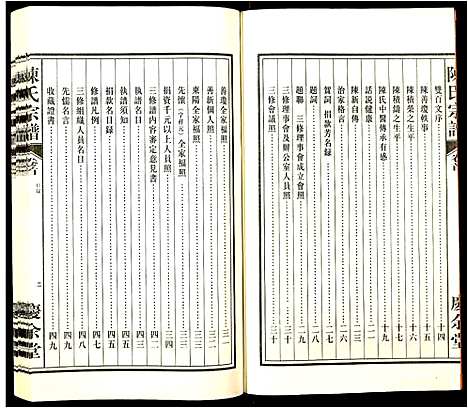 陳氏宗譜
卷首
慶余堂
雙百文序 十四
陳善瓊軼事 十五
陳積榮之生平 十六
陳積鑄之生平 十七
陳氏中醫傳承有感 十九
話説健康 十九
陳新自傳 二一
治家格言 二六
賀詞 捐款芳名録 二七
題詞 二八
題聯 三修理事會成立會照 二九
三修理事會及辦公室人員照 三十
三修會議照 三十
善瓊全家福照
善新個人照
東陽全家福照 三二
先懷 全家福照
捐資千元以上人員照 三四
三修内部審定意見書 四二
執譜名目 四五
執譜須知 四五
捐款名目録 四七
修譜凡例 四七
三修組織人員名目 四八
先儒名言 四九
收藏證書 四九
陳氏宗譜
卷首
目録
二
慶余堂